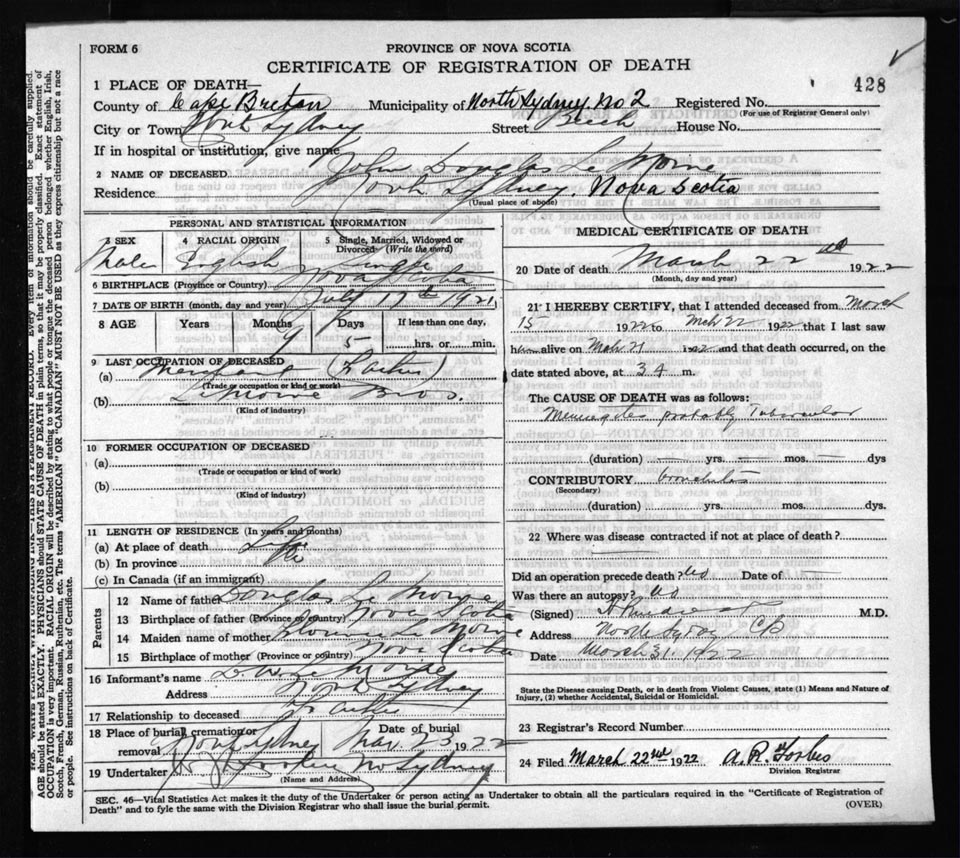 FORM 6
PROVINCE OF NOVA SCOTIA
CERTIFICATE OF REGISTRATION OF DEATH
428
1 PLACE OF DEATH
County of Cape Breton Municipality of North Sydney No 2 Registered No.
(For use of Registrar General only)
City or Town North Sydney Street House No.
If in hospital or institution, give name
2 NAME OF DECEASED John Douglas Le Moine
Residence North Sydney Nova Scotia
(Usual place of abode)
PERSONAL AND STATISTICAL INFORMATION
3 SEX 4 RACIAL ORIGIN 5 Single, Married, Widowed or Divorced (Write the word)
Male English Single
6 BIRTHPLACE (Province or Country) Nova Scotia
7 DATE OF BIRTH (month, day and year) July 17th 1921
8 AGE Years Months Days If less than one day,
5 hrs. or min.
9 LAST OCCUPATION OF DECEASED
(a) Merchant (Father)
(Trade or occupation or kind of work)
(b) LeMoine Bros.
(Kind of industry)
10 FORMER OCCUPATION OF DECEASED
(a)
(Trade or occupation or kind of work)
(b)
(Kind of industry)
11 LENGTH OF RESIDENCE (In years and months)
(a) At place of death Life
(b) In province
(c) In Canada (if an immigrant)
Parents
12 Name of father Douglas Le Moine
13 Birthplace of father (Province or country) Nova Scotia
14 Maiden name of mother Le Moine
15 Birthplace of mother (Province or country) Nova Scotia
16 Informant's name D. W. Le Moine
Address North Sydney
17 Relationship to deceased Father
18 Place of burial, cremation or removal North Sydney Date of burial Mar 23 1922
19 Undertaker No Sydney
(Name and Address)
MEDICAL CERTIFICATE OF DEATH
20 Date of death March 22nd 1922
(Month, day and year)
21 I HEREBY CERTIFY, that I attended deceased from March
15 1922 to Mch 22 1922 that I last saw
him alive on Mch 21 1922 and that death occurred, on the
date stated above, at 3 A m.
The CAUSE OF DEATH was as follows:
Meningitis probably Tubercular
(duration) yrs. mos. dys
CONTRIBUTORY bronchitis
(Secondary)
(duration) yrs. mos. dys.
22 Where was disease contracted if not at place of death?
Did an operation precede death? No Date of
Was there an autopsy? No
(Signed) M.D.
Address North Sydney CB
Date March 31, 1922
State the Disease causing Death, or in death from Violent Causes, state (1) Means and Nature of
Injury, (2) whether Accidental, Suicidal or Homicidal.
23 Registrar's Record Number
24 Filed March 22nd 1922 A. R. Forbes
Division Registrar
SEC. 46—Vital Statistics Act makes it the duty of the Undertaker or person acting as Undertaker to obtain all the particulars required in the "Certificate of Registration of
Death" and to fyle the same with the Division Registrar who shall issue the burial permit.
(OVER)
AGE should be stated EXACTLY. PHYSICIANS should STATE CAUSE OF DEATH in plain terms, so that it may be properly classified. Exact statement of
OCCUPATION is very important. RACIAL ORIGIN will be described by stating to what people or tongue the deceased person belonged whether English, Irish,
Scotch, French, German, Russian, Ruthenian, etc. The terms "AMERICAN" or "CANADIAN" MUST NOT BE USED as they express citizenship but not a race
or people. See instructions on back of Certificate.